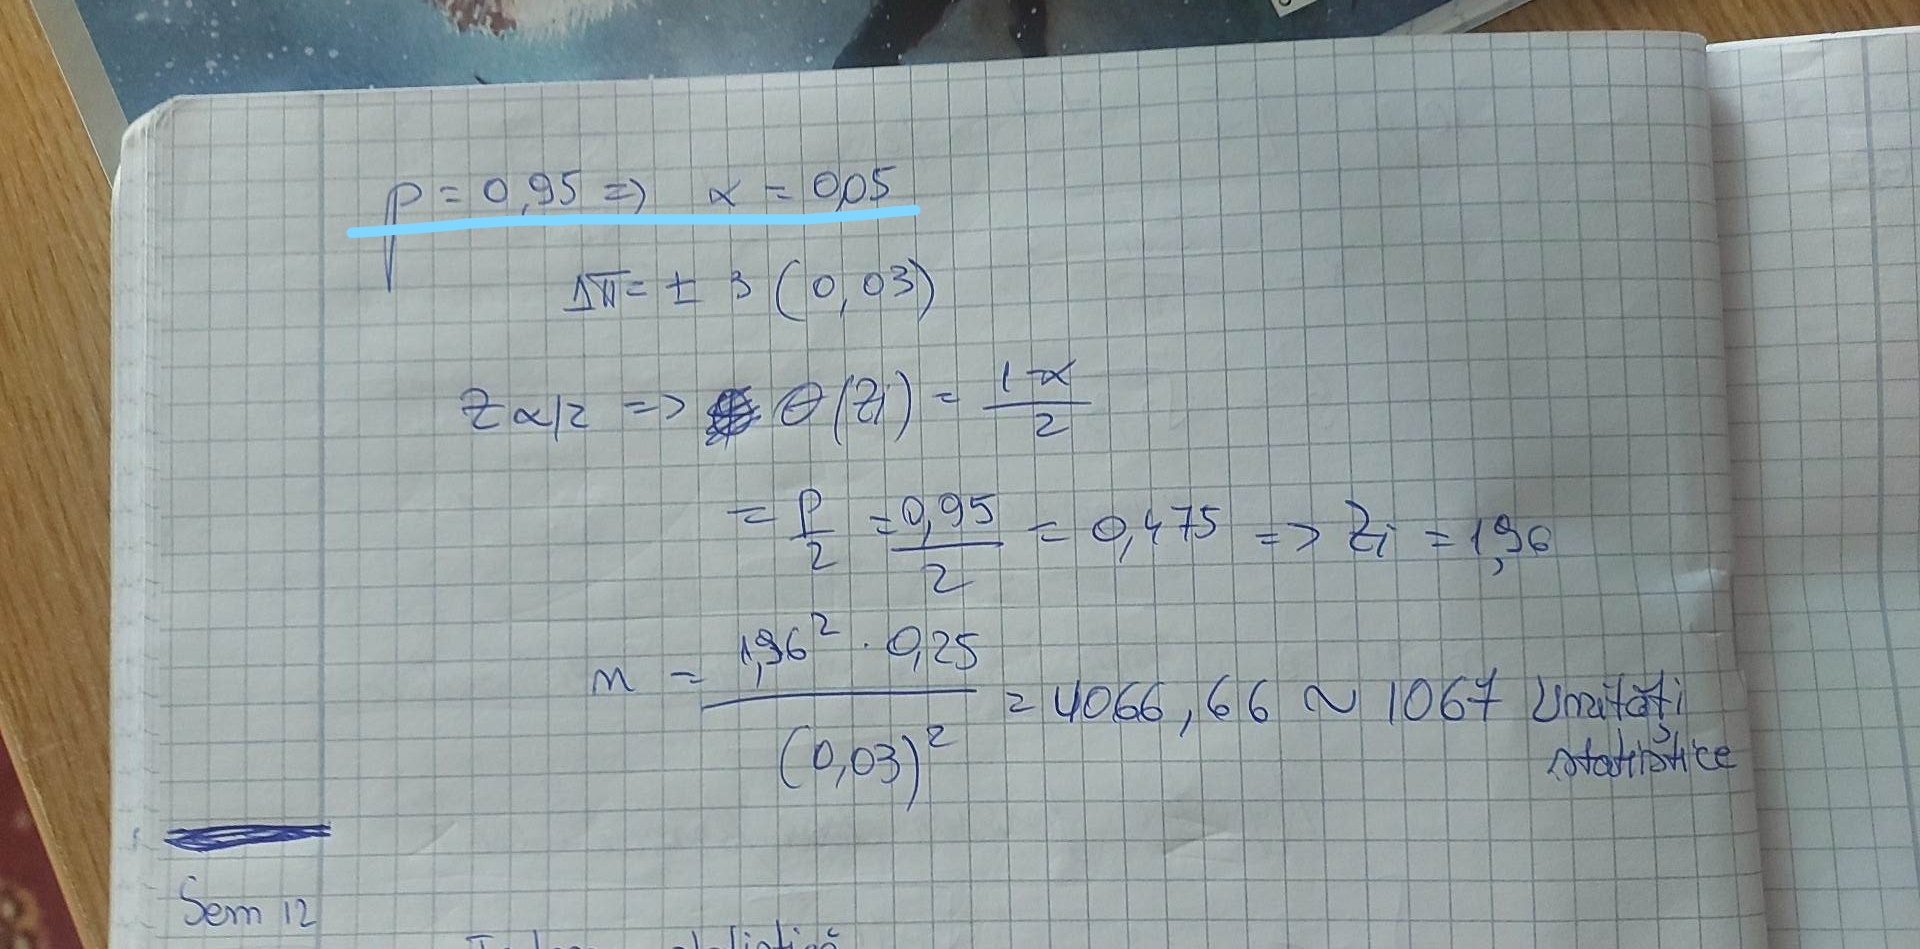 p = 0,95 => α = 0,05
Δπ = ± 3 (0,03)
Zα/2 => θ(Zi) = (1-α)/2
= p/2 = 0,95/2 = 0,475 => Zi = 1,96
n = (1,96² · 0,25)/(0,03)² = 4066,66 ~ 1067 Unități
statistice
Sem 12